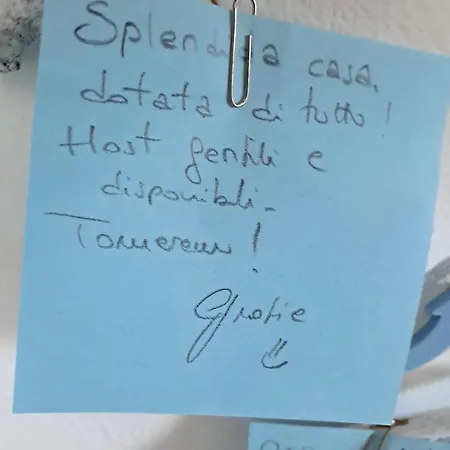 Splendida casa,
dotata di tutto!
Host gentili e
disponibili-
Torneremo!
Grazie